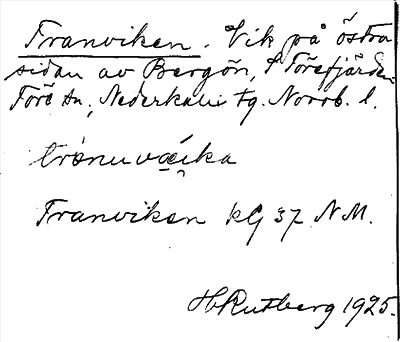 Tranviken. Vik på östra
sidan av Bergön, i Törefjärden
Töre sn., Nederkalix tg. Norrb. l.
trànuvæika
Tranviken kG 37 N.M.
HRutberg 1925.